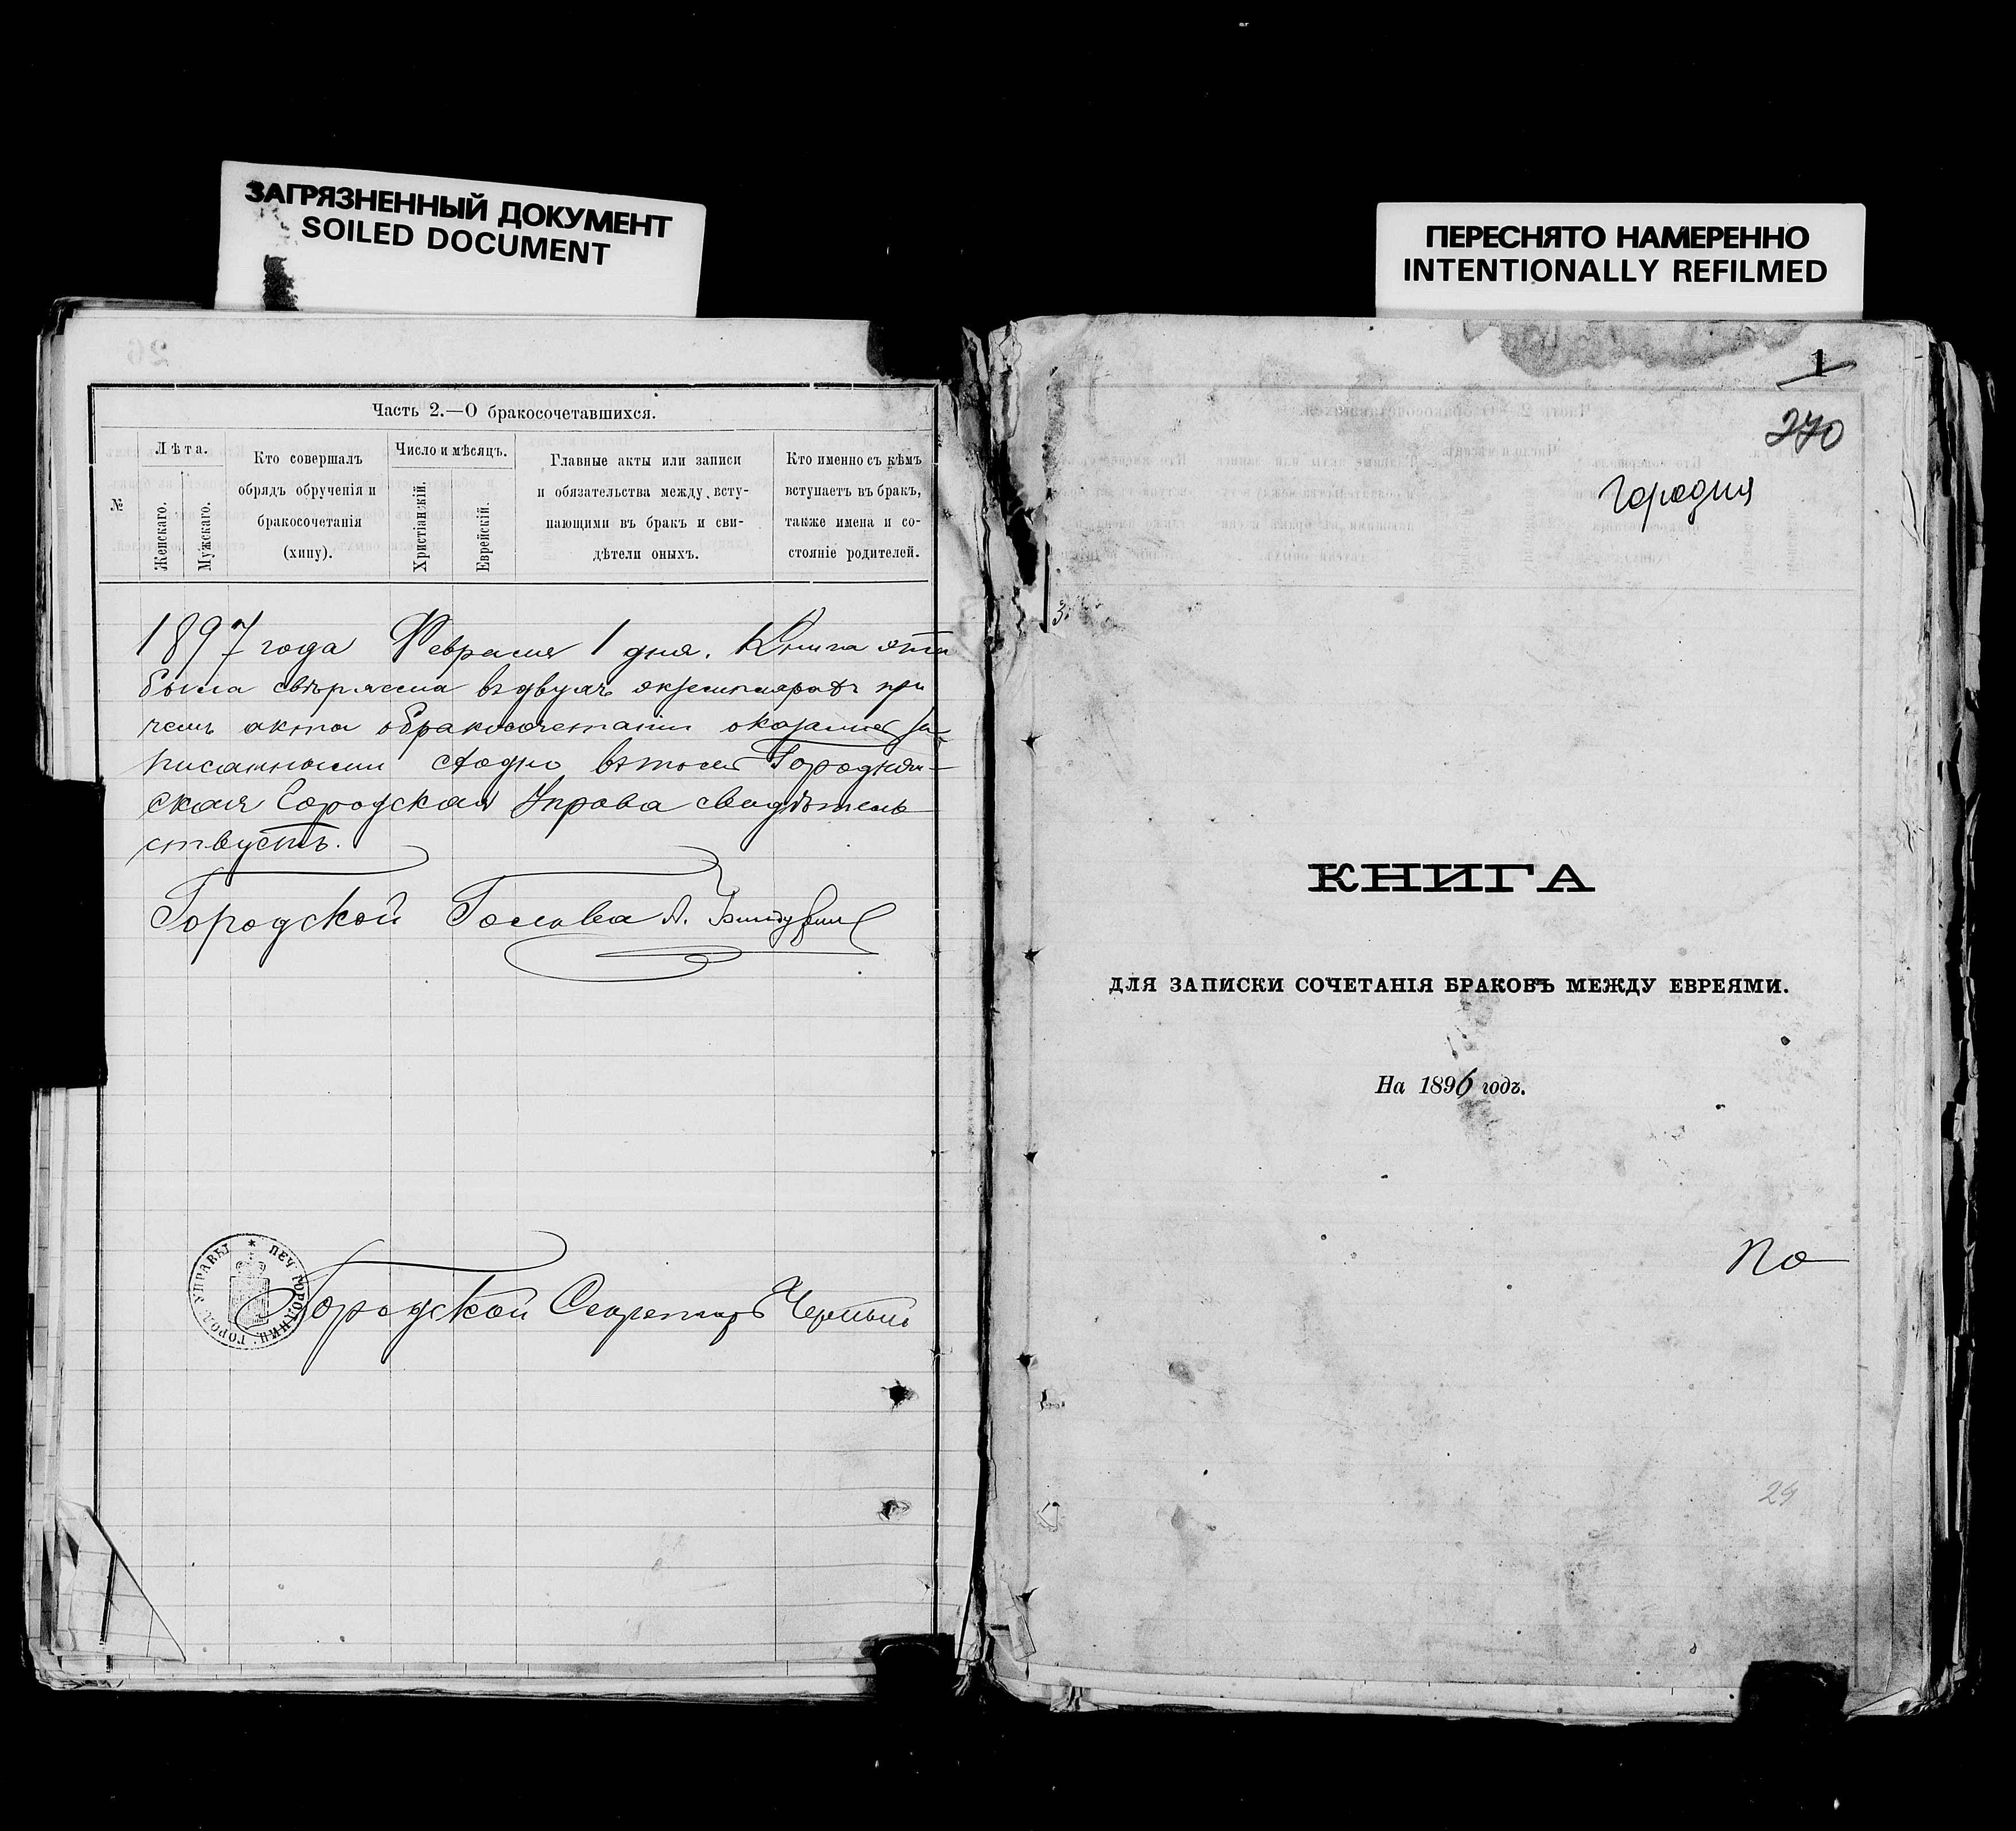 ЗАГРЯЗНЕННЫЙ ДОКУМЕНТ
SOILED DOCUMENT
26
Часть 2.—О бракосочетавшихся.
№
Лѣта.
Женскаго.
Мужскаго.
Кто совершалъ
обрядъ обрученія и
бракосочетанія
(хипу).
Число и мѣсяцъ.
Христіанскій.
Еврейскій.
Главные акты или записи
и обязательства между всту-
пающими въ бракъ и сви-
дѣтели оныхъ.
Кто именно съ кѣмъ
вступаетъ въ бракъ,
также имена и со-
стояніе родителей.
1897 года Февраля 1 дня. Книга эта
была свѣрена въ двухъ экземплярахъ при
чемъ акты обракосочетании оказались за-
писанными сходно въ томъ Городнян-
ская Городская Управа свидѣтель
ствуетъ.
Городской Голова А.
Городской Секретарь
ПЕЧ. ГОРОДНИЦ. ГОРОД. УПРАВЫ
ПЕРЕСНЯТО НАМЕРЕННО
INTENTIONALLY REFILMED
1
270
Городня
КНИГА
ДЛЯ ЗАПИСКИ СОЧЕТАНІЯ БРАКОВЪ МЕЖДУ ЕВРЕЯМИ.
На 1896 годъ.
По